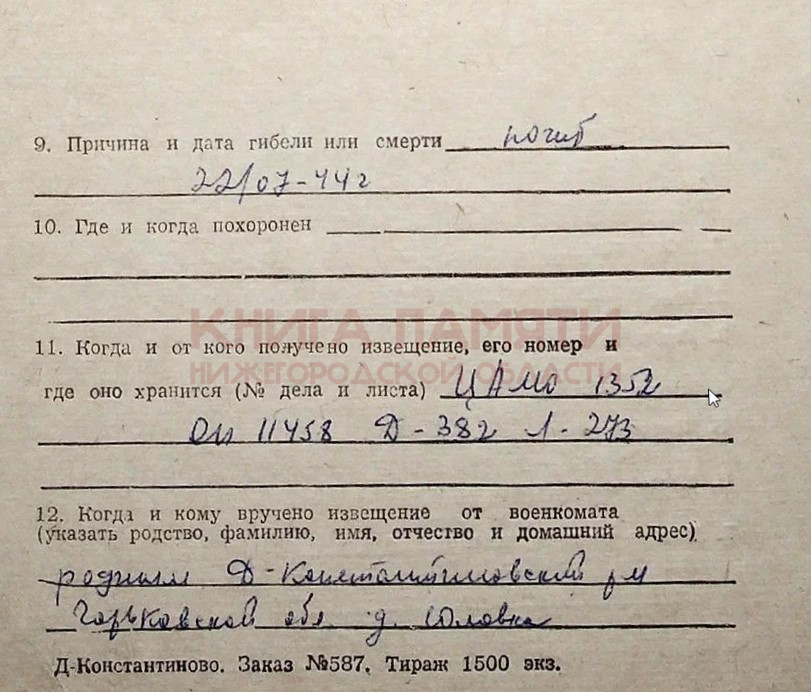 9. Причина и дата гибели или смерти погиб
22/07-44г
10. Где и когда похоронен
КНИГА ПАМЯТИ
11. Когда и от кого получено извещение, его номер и
НИЖЕГОРОДСКОЙ ОБЛАСТИ
где оно хранится (№ дела и листа) ЦАМО 1352
оп 11458 Д-382 л-273
12. Когда и кому вручено извещение от военкомата
(указать родство, фамилию, имя, отчество и домашний адрес)
родным Д-Константиновский
Горьковской обл д. Юловка
Д-Константиново. Заказ №587. Тираж 1500 экз.